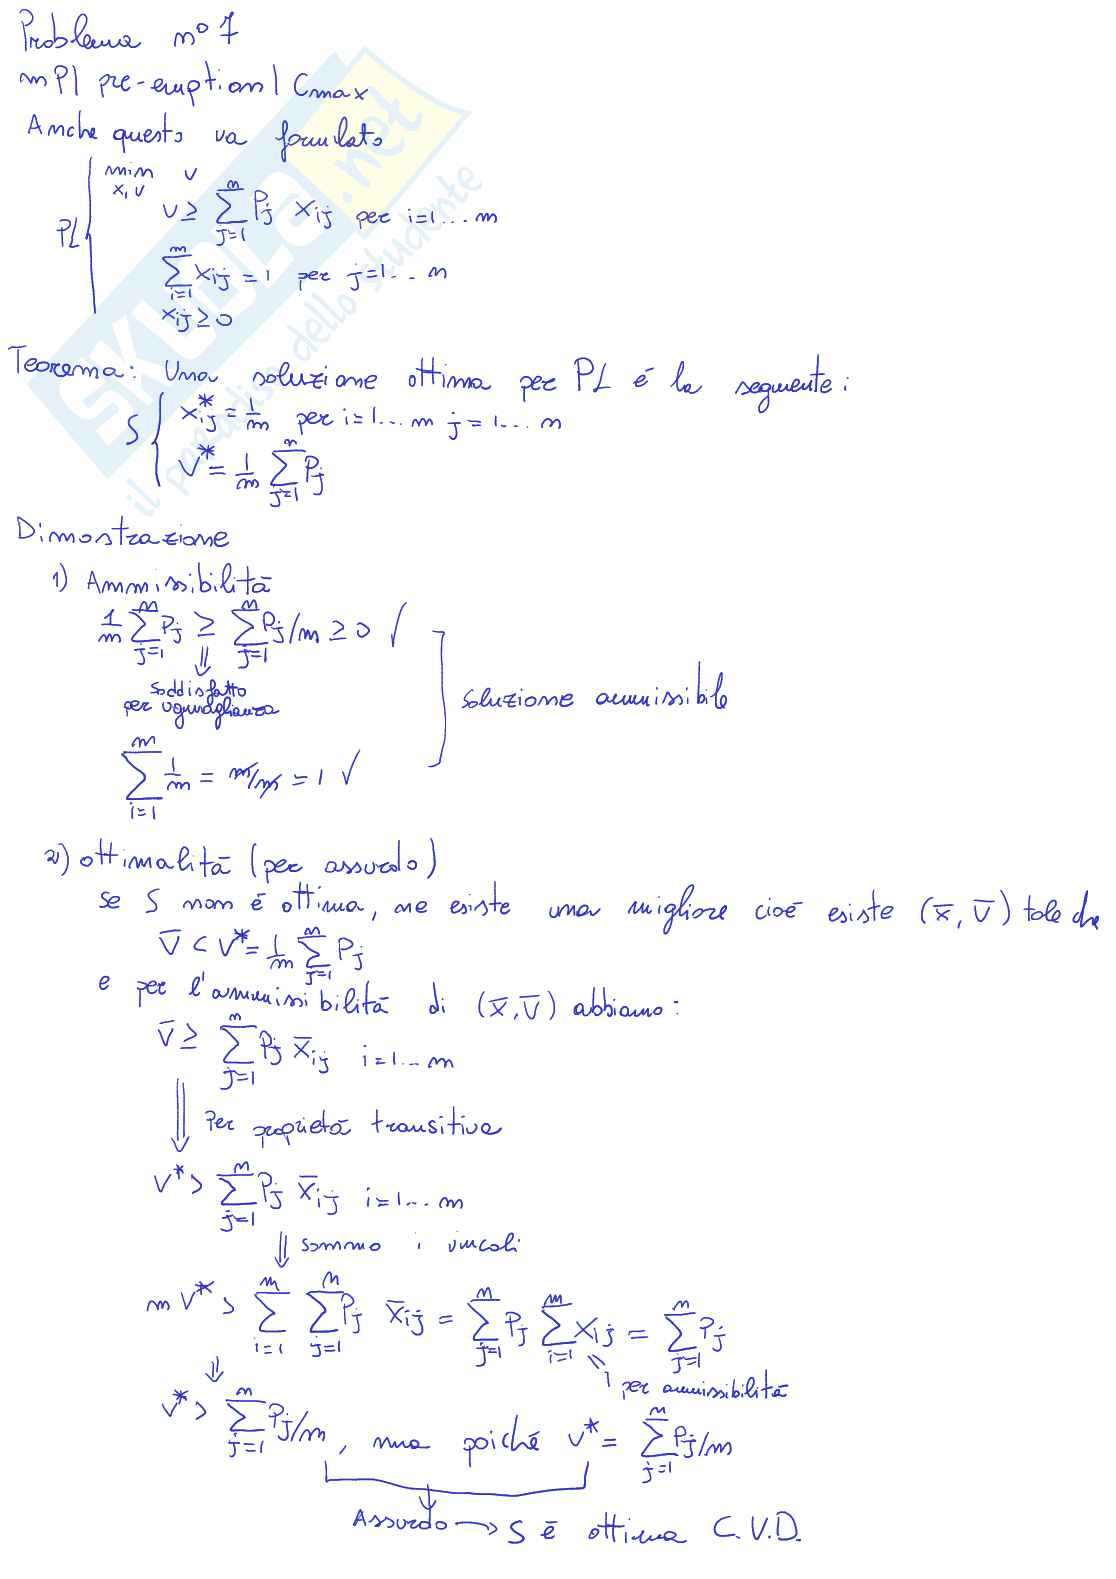 Problema n° 7
m P| pre-emption | Cmax
Anche questo va formulato
PL { min x,v v
v ≥ Σ_{j=1}^{n} Pj xij per i=1...m
Σ_{i=1}^{m} xij = 1 per j=1...n
xij ≥ 0
Teorema: Una soluzione ottima per PL é la seguente:
S { x*ij = 1/m per i=1...m j=1...n
V* = 1/m Σ_{j=1}^{n} Pj
Dimostrazione
1) Ammissibilitá
1/m Σ_{j=1}^{n} Pj ≥ Σ_{j=1}^{n} Pj/m ≥ 0 √
⇓
soddisfatto
per uguaglianza
soluzione ammissibile
Σ_{i=1}^{m} 1/m = m/m = 1 √
2) ottimalitá (per assurdo)
se S non é ottima, ne esiste una migliore cioé esiste (x̄, V̄) tale che
V̄ < V* = 1/m Σ_{j=1}^{n} Pj
e per l'ammissibilitá di (x̄, V̄) abbiamo:
V̄ ≥ Σ_{j=1}^{n} Pj x̄ij i=1...m
⇓ Per proprietá transitiva
V* > Σ_{j=1}^{n} Pj x̄ij i=1...m
⇓ sommo i vincoli
m V* > Σ_{i=1}^{m} Σ_{j=1}^{n} Pj x̄ij = Σ_{j=1}^{n} Pj Σ_{i=1}^{m} xij = Σ_{j=1}^{n} Pj
⇓ 1 per ammissibilitá
V* > Σ_{j=1}^{n} Pj/m , ma poiché V* = Σ_{j=1}^{n} Pj/m
Assurdo → S é ottima C.V.D.
SKUOLA.net
il paradiso dello studente